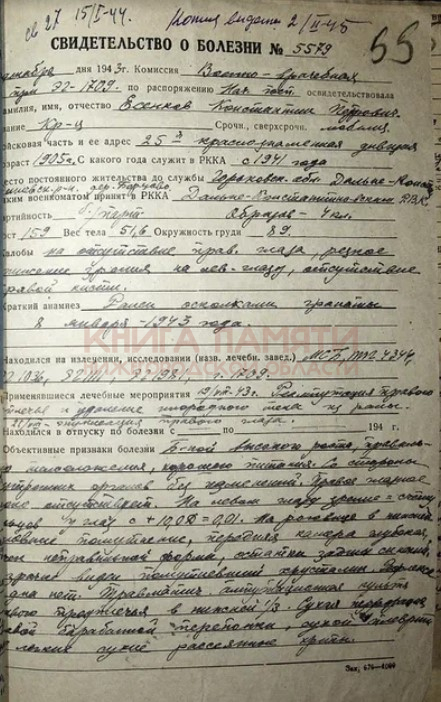 15/I-44. Копия выдана 2/II-45
св 27
55
СВИДЕТЕЛЬСТВО О БОЛЕЗНИ № 5579
декабря дня 1943г. Комиссия Военно-врачебная
при ЭГ-1709. по распоряжению Нач. гост. освидетельствовала
фамилия, имя, отчество Есенков Константин Петрович
звание Кр-ц Срочн., сверхсрочн.
войсковая часть и ее адрес 25я краснознаменная дивизия
1905г. С какого года служит в РККА с 1941 года
место постоянного жительства до службы Горьковск. обл. Дальне-Конст
дер.
каким военкоматом принят в РККА Дальне-Константиновским РВК
партийность б/парт Образов - 4 кл.
рост 159 Вес тела 51,6 Окружность груди 89.
жалобы на отсутствие прав. глаза, резкое
понижение зрения на лев. глазу, отсутствие
правой кисти.
Краткий анамнез Ранен осколками гранаты
8 января - 1943 года.
КНИГА ПАМЯТИ
НИЖЕГОРОДСКОЙ ОБЛАСТИ
Находился на излечении, исследовании (назв. лечебн. завед.) МСБ, ППГ 4344,
1709.
Применявшиеся лечебные мероприятия Реампутация правого
предплечья и удаление инородного тела из раны.
правого глаза.
Находился в отпуску по болезни с по 194 г.
Объективные признаки болезни Б-ной высокого роста, правильн
телосложения, хорошего питания. Со стороны
внутренних органов без изменений. Правое глазное
яблоко отсутствует. На левом глазу зрение = сотым
у глаз с +10,0D = 0,01. На роговице в нижней
помутнение, передняя камера глубокая,
неправильной формы, остатки задних синехий,
виден помутневший хрусталик. Рефлекса
дна нет. Травматич. ампутационная культя
правого предплечья в нижней 1/3. Сухая перфорация
барабанной перепонки, сухой плеврит
в легких сухие рассеянные хрипы.
Зак. 676—4000